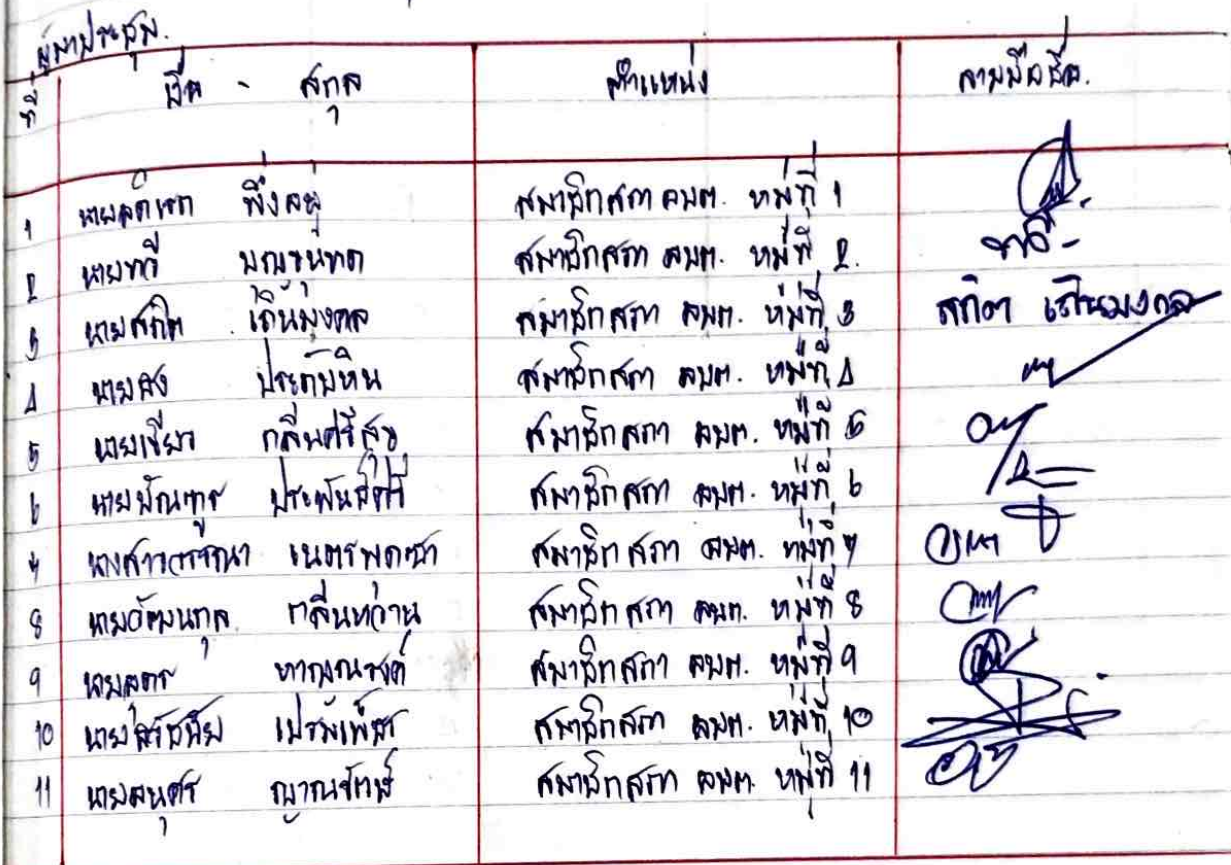 ผู้มาประชุม.
ที่ ชื่อ - สกุล ตำแหน่ง ลายมือชื่อ.
1 นายอดิเรก พึ่งอยู่ สมาชิกสภา อบต. หมู่ที่ 1
2 นายทวี สมาชิกสภา อบต. หมู่ที่ 2. ทวี -
3 นายสถิต เถินมงคล สมาชิกสภา อบต. หมู่ที่ 3 สถิต เถินมงคล
4 นายสง ประดับหิน สมาชิกสภา อบต. หมู่ที่ 4
5 นายเขียว กลิ่นศรีสุข สมาชิกสภา อบต. หมู่ที่ 5
6 นายบัณฑูร ประพันธ์ศรี สมาชิกสภา อบต. หมู่ที่ 6
7 นางสาววรรณา เนตรพุดซา สมาชิกสภา อบต. หมู่ที่ 7
8 นายวัฒนกุล กลิ่นหว่าน สมาชิกสภา อบต. หมู่ที่ 8
9 หาญณรงค์ สมาชิกสภา อบต. หมู่ที่ 9
10 เปรมเพ็ชร สมาชิกสภา อบต. หมู่ที่ 10
11 ญาณรักษ์ สมาชิกสภา อบต. หมู่ที่ 11